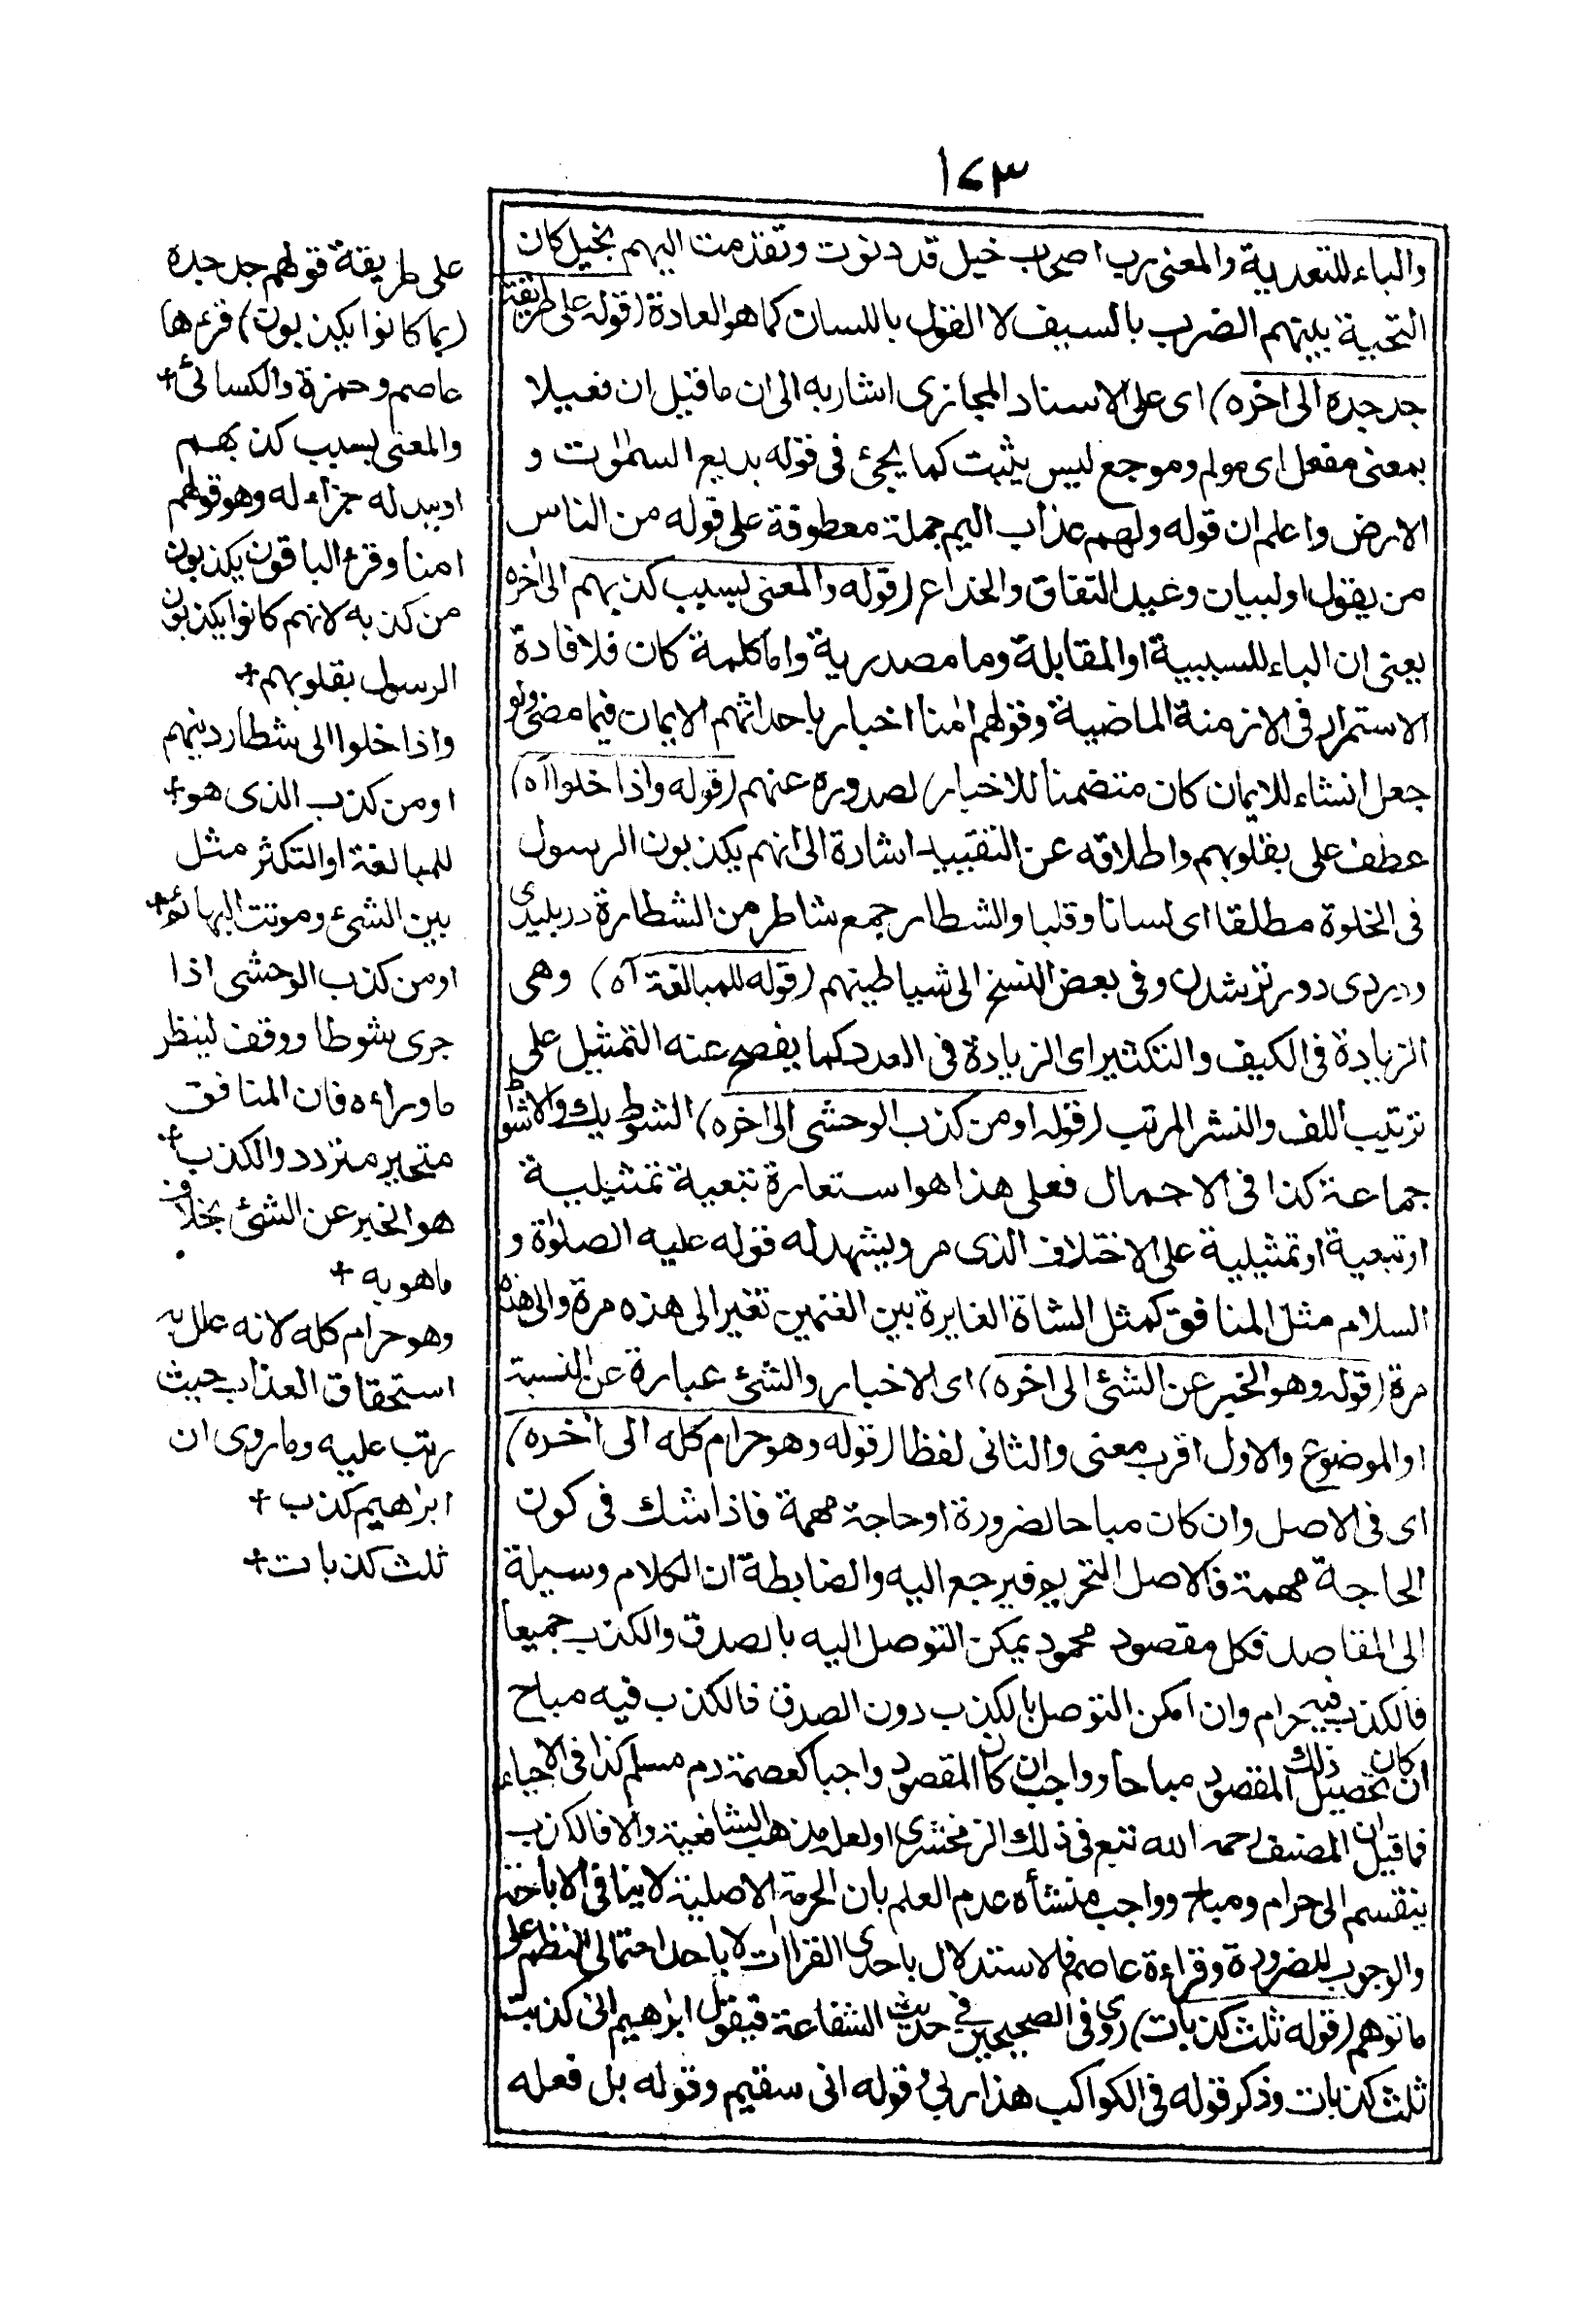 ١٧٣
والباء للتعدية والمعنى رب اصحاب خيل قد دنوت وتقدمت اليهم بخيل كان
التحية بينهم الضرب بالسيف لا القول باللسان كما هو العادة (قوله على طريقة
جد جده الى اخره) اى على الاسناد المجازى اشار به الى ان ما قيل ان فعيلا
بمعنى مفعل اى مولم وموجع ليس يثبت كما يجئ فى قوله بديع السمٰوٰت و
الارض واعلم ان قوله ولهم عذاب اليم جملة معطوفة على قوله من الناس
من يقول اولبيان وعيد النفاق والخداع (قوله والمعنى بسبب كذبهم الى اخره
يعنى ان الباء للسببية او المقابلة وما مصدرية واما كلمة كان فلافادة
الاستمرار فى الازمنة الماضية وقولهم اٰمنا اخبار باحداثهم الايمان فيما مضى ولو
جعل انشاء للايمان كان متضمنا للاخبار لصدوره عنهم (قوله واذا خلوا اه)
عطف على بقلوبهم واطلاقه عن التقييد اشارة الى انهم يكذبون الرسول
فى الخلوة مطلقا اى لسانا وقلبا والشطار جمع شاطر من الشطارة در پليدى
ودزدى دور تر شدن وفى بعض النسخ الى شياطينهم (قوله للمبالغة اه) وهى
الزيادة فى الكيف والتكثير اى الزيادة فى العدد كما يفصح عنه التمثيل على
ترتيب اللف والنشر المرتب (قوله او من كذب الوحشى الى اخره) الشوط يك والاشواط
جماعة كذا فى الاجمال فعلى هذا هو استعارة تبعية تمثيلية
او تبعية او تمثيلية على الاختلاف الذى مر ويشهد له قوله عليه الصلوٰة و
السلام مثل المنافق كمثل الشاة العايرة بين الغنمين تعير الى هذه مرة والى هذه
مرة (قوله وهو الخبر عن الشئ الى اخره) اى الاخبار والشئ عبارة عن النسبة
او الموضوع والاول اقرب معنى والثانى لفظا (قوله وهو حرام كله الى اخره)
اى فى الاصل وان كان مباحا لضرورة او حاجة مهمة فاذا شك فى كون
الحاجة مهمة فالاصل التحريم فيرجع اليه والضابطة ان الكلام وسيلة
الى المقاصد فكل مقصود محمود يمكن التوصل اليه بالصدق والكذب جميعا
فالكذب فيه حرام وان امكن التوصل بالكذب دون الصدق فالكذب فيه مباح
ان كان تحصيل ذلك المقصود مباحا وواجب ان كان المقصود واجبا كعصمة دم مسلم كذا فى الاحياء
فما قيل ان المصنف رحمه الله تبع فى ذلك الزمخشرى او لعله مذهب الشافعية والا فالكذب
ينقسم الى حرام ومباح وواجب منشأه عدم العلم بان الحرمة الاصلية لا ينافى الاباحة
والوجوب للضرورة وقراءة عاصم فالاستدلال باحدى القراات لا باحد احتمالى النظم على
ما توهم (قوله ثلث كذبات) روى فى الصحيحين فى حديث الشفاعة فيقول ابرٰهيم انى كذبت
ثلث كذبات وذكر قوله فى الكواكب هذا ربى وقوله انى سقيم وقوله بل فعله
على طريقة قولهم جد جده
(بما كانوا يكذبون) قرءها
عاصم وحمزة والكسائى+
والمعنى بسبب كذبهم
او ببدله جزاء له وهو قولهم
امنا وقرء الباقون يكذبون
من كذبه لانهم كانوا يكذبون
الرسول بقلوبهم+
واذا خلوا الى شطار دينهم
او من كذب الذى هو+
للمبالغة او التكثر مثل
بين الشئ وموتت البهائم+
او من كذب الوحشى اذا
جرى شوطا ووقف لينظر
ما وراءه فان المنافق
متحير متردد والكذب+
هو الخبر عن الشئ بخلاف
ما هو به +
وهو حرام كله لانه علل به
استحقاق العذاب حيث
رتب عليه وما روى ان
ابرٰهيم كذب +
ثلث كذبات+